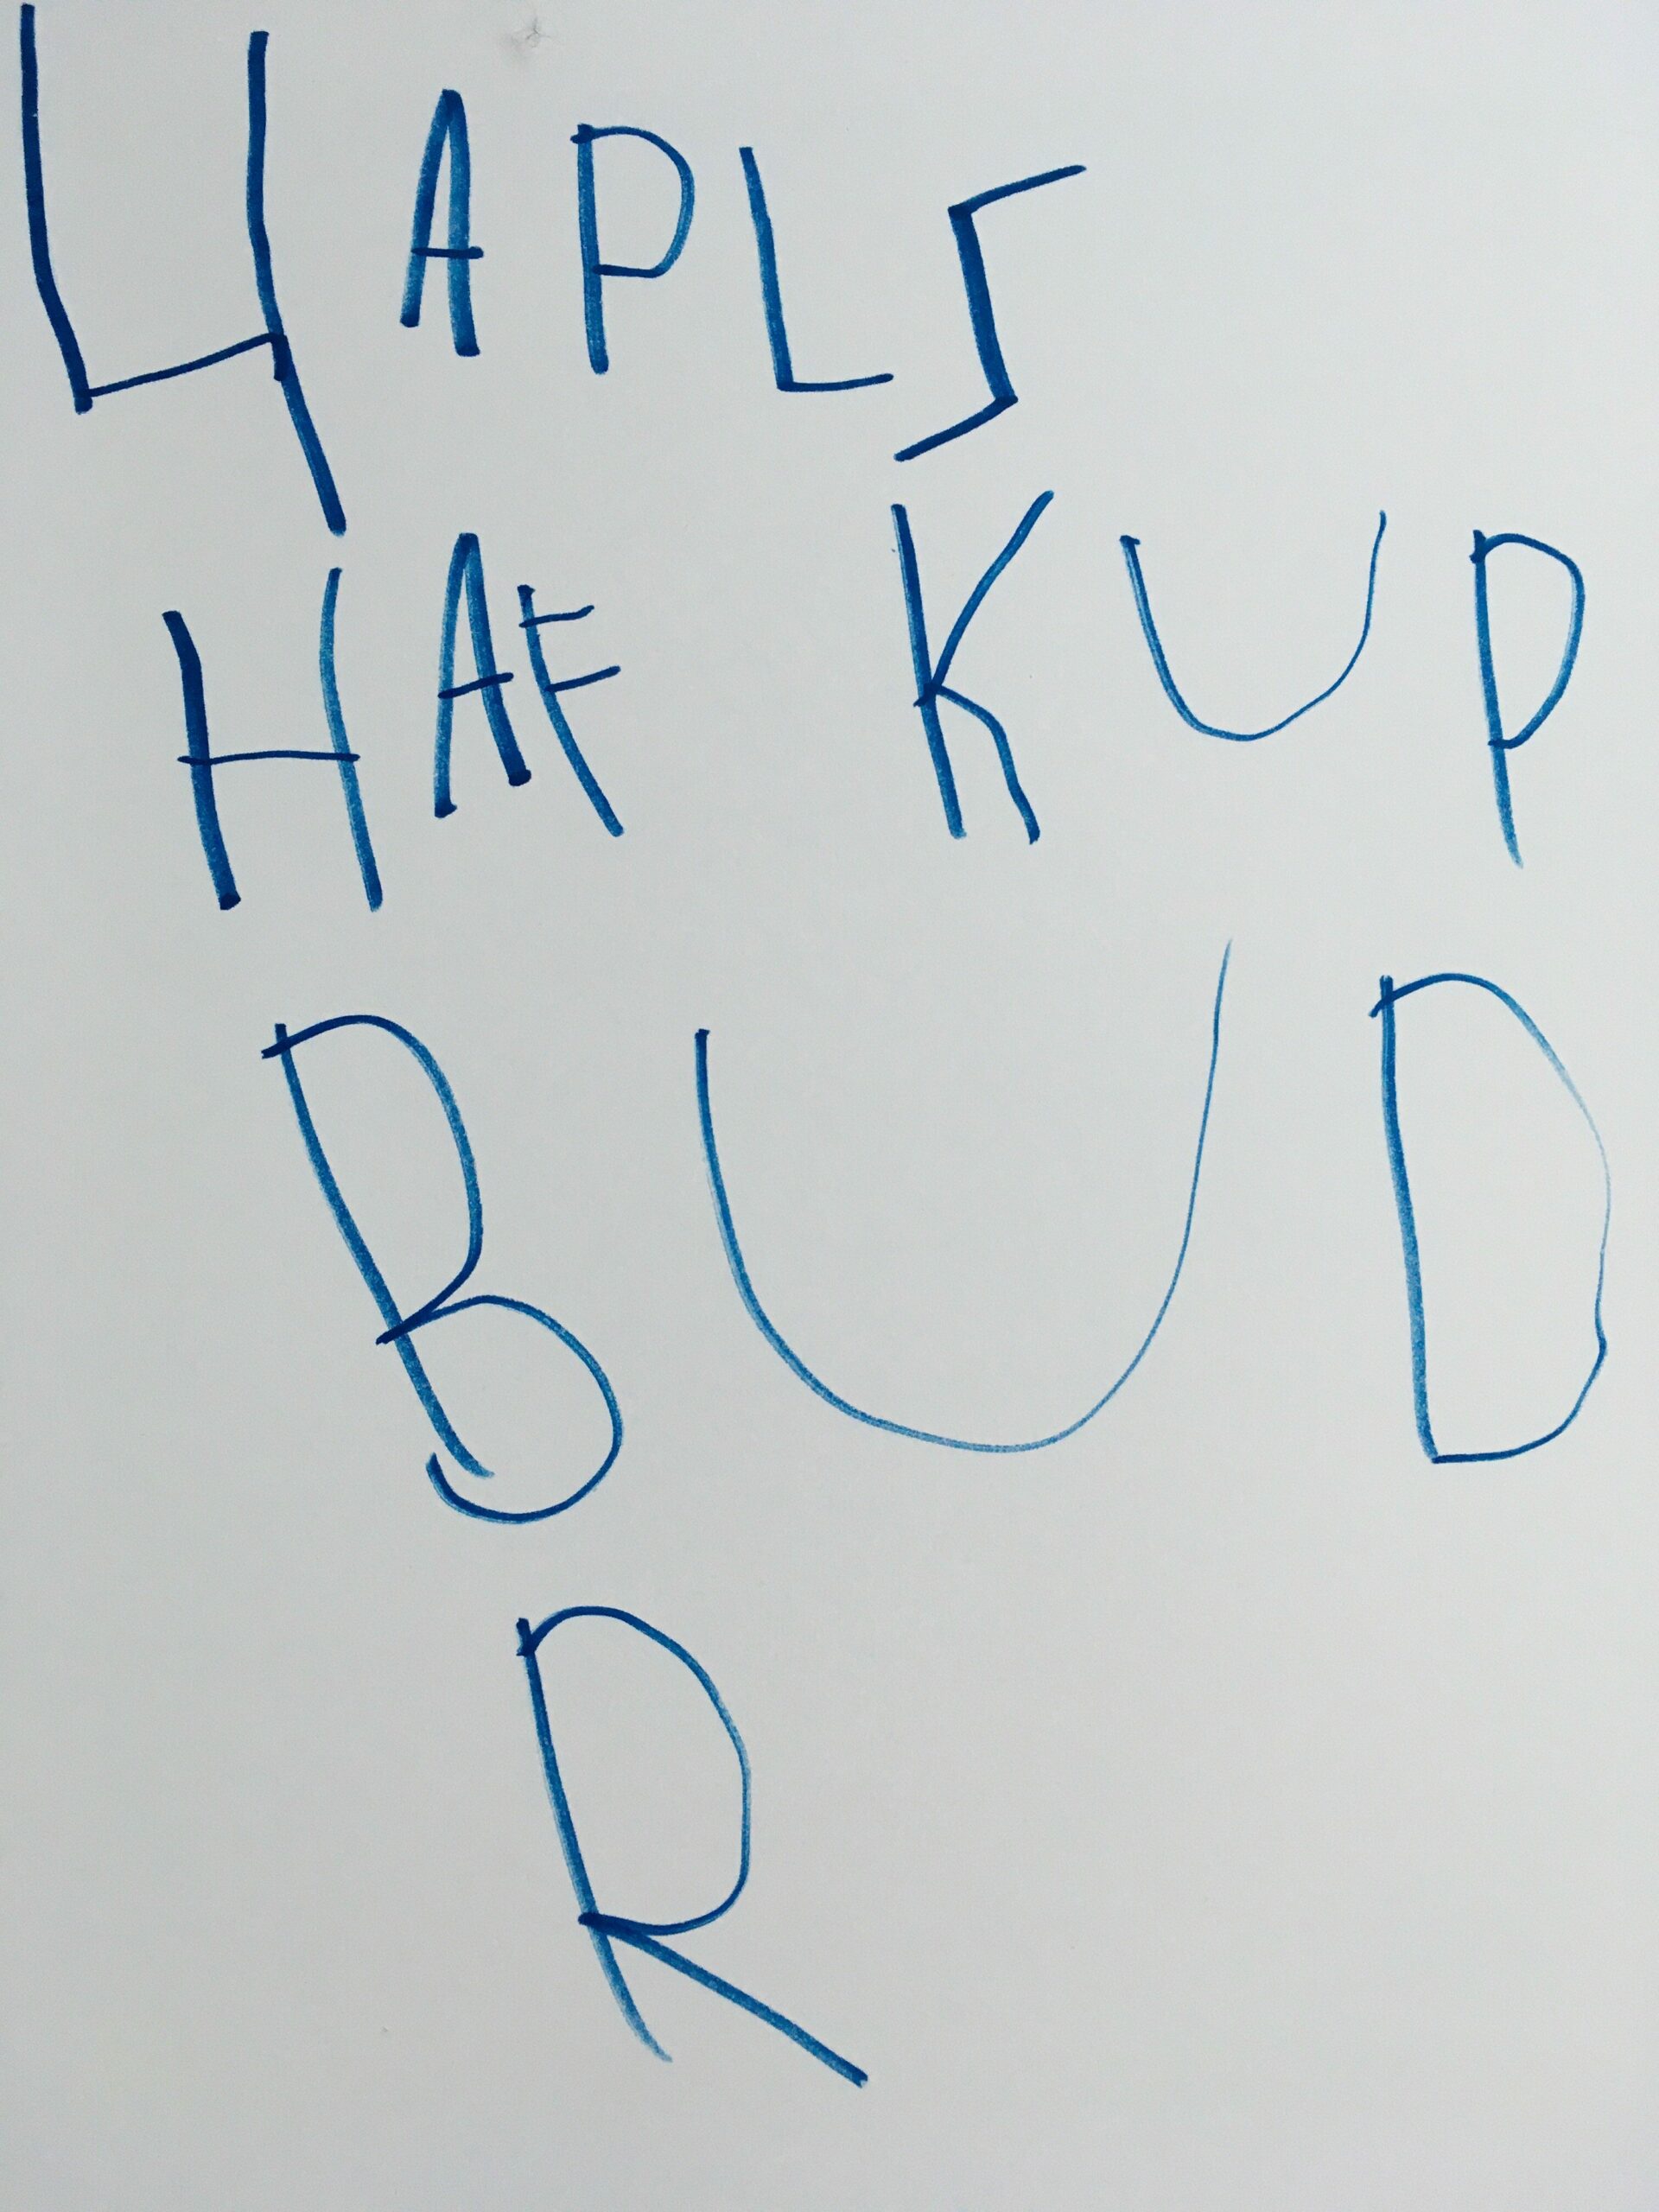 4 APLS
HAF KUP
BUD
R